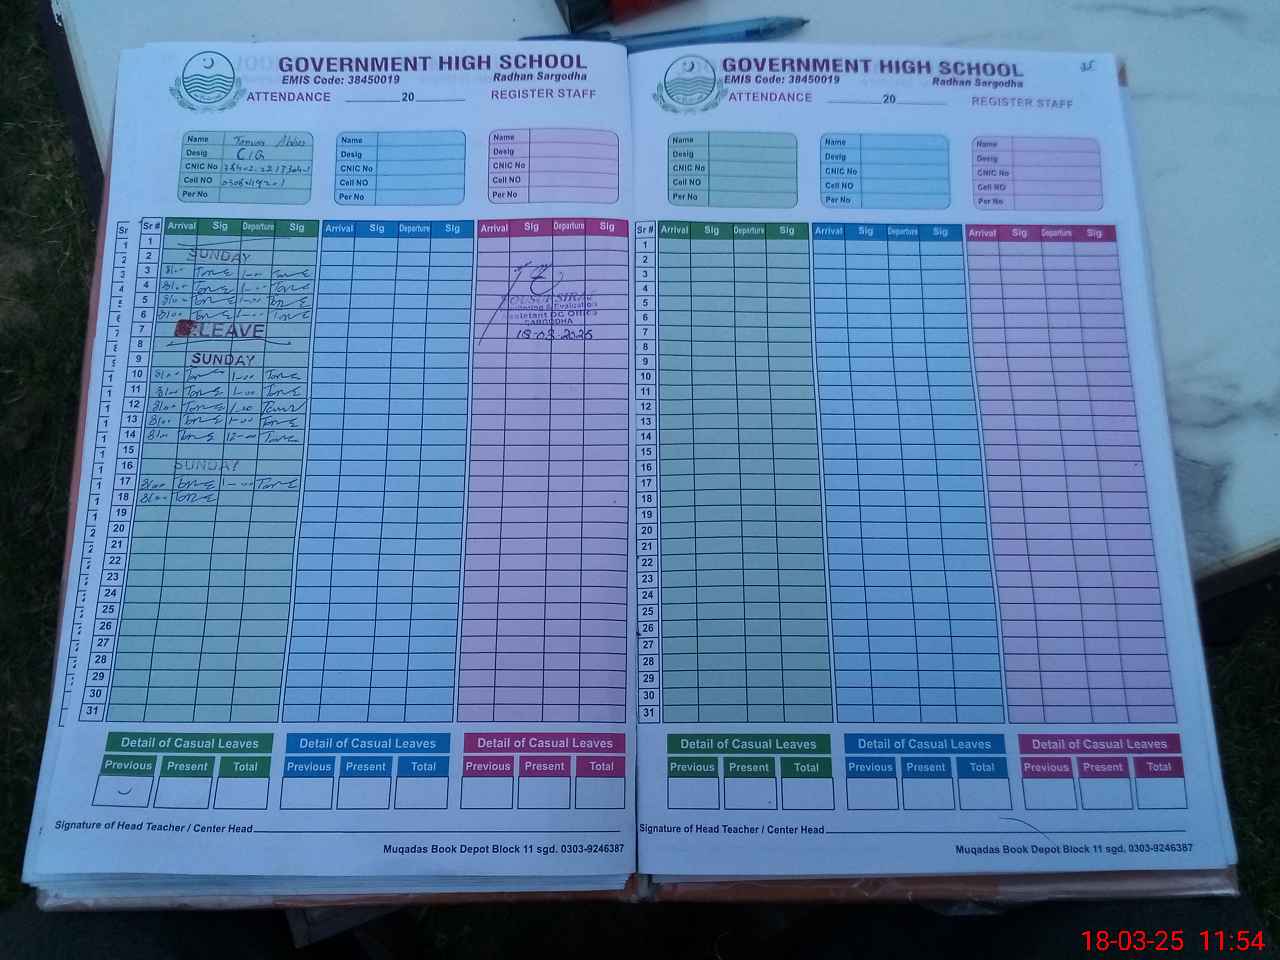 GOVERNMENT HIGH SCHOOL
EMIS Code: 38450019 Radhan Sargodha
ATTENDANCE ____20____ REGISTER STAFF
Name
Desig C/G
CNIC No
Cell NO
Per No
Name
Desig
CNIC No
Cell NO
Per No
Name
Desig
CNIC No
Cell NO
Per No
Sr # Arrival Sig Departure Sig Arrival Sig Departure Sig Arrival Sig Departure Sig
1
2 SUNDAY
3 8/00 1-00
4 8/00 1-00
5 8/00 1-00
6 8/00 1-00
7 LEAVE
8
9 SUNDAY
10 8/00 1-00
11 8/00 1-00
12 8/00 1-00
13 8/00 1-00
14 8/00 12-00
15
16 SUNDAY
17 8/00 1-00
18 8/00
19
20
21
22
23
24
25
26
27
28
29
30
31
YOUSUF SIRAJ
Monitoring & Evaluation
Assistant DC Office
SARGODHA
18-03-2025
Detail of Casual Leaves Detail of Casual Leaves Detail of Casual Leaves
Previous Present Total Previous Present Total Previous Present Total
Signature of Head Teacher / Center Head
Muqadas Book Depot Block 11 sgd. 0303-9246387
GOVERNMENT HIGH SCHOOL
EMIS Code: 38450019 Radhan Sargodha
ATTENDANCE ____20____ REGISTER STAFF
Name
Desig
CNIC No
Cell NO
Per No
Name
Desig
CNIC No
Cell NO
Per No
Name
Desig
CNIC No
Cell NO
Per No
Sr # Arrival Sig Departure Sig Arrival Sig Departure Sig Arrival Sig Departure Sig
1
2
3
4
5
6
7
8
9
10
11
12
13
14
15
16
17
18
19
20
21
22
23
24
25
26
27
28
29
30
31
Detail of Casual Leaves Detail of Casual Leaves Detail of Casual Leaves
Previous Present Total Previous Present Total Previous Present Total
Signature of Head Teacher / Center Head
Muqadas Book Depot Block 11 sgd. 0303-9246387
18-03-25 11:54